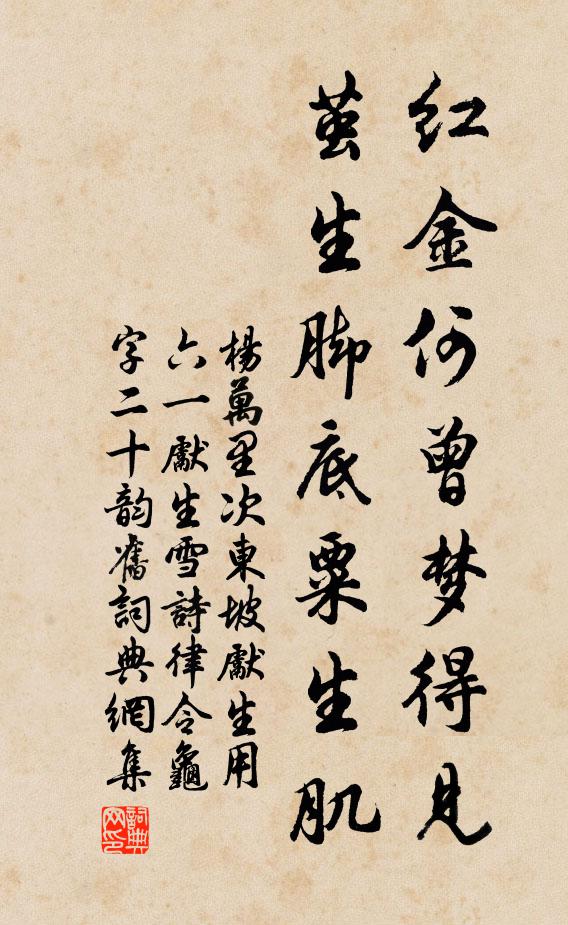 红金何曾梦得见
茧生脚底粟生肌
楊萬里次東坡獻生用
六一獻生雪詩律令龜
字二十韵舊詞典網集
詞典网印